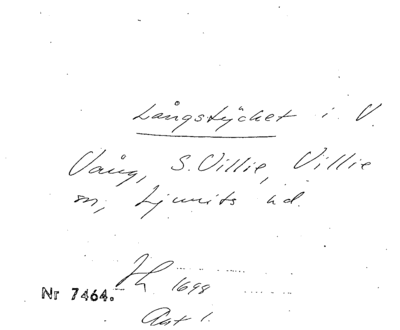 Långstycket i V.
Vång, S. Villie, Villie
sn, Ljunits hd.
Jh 1698
Nr 7464.
Akt 1.